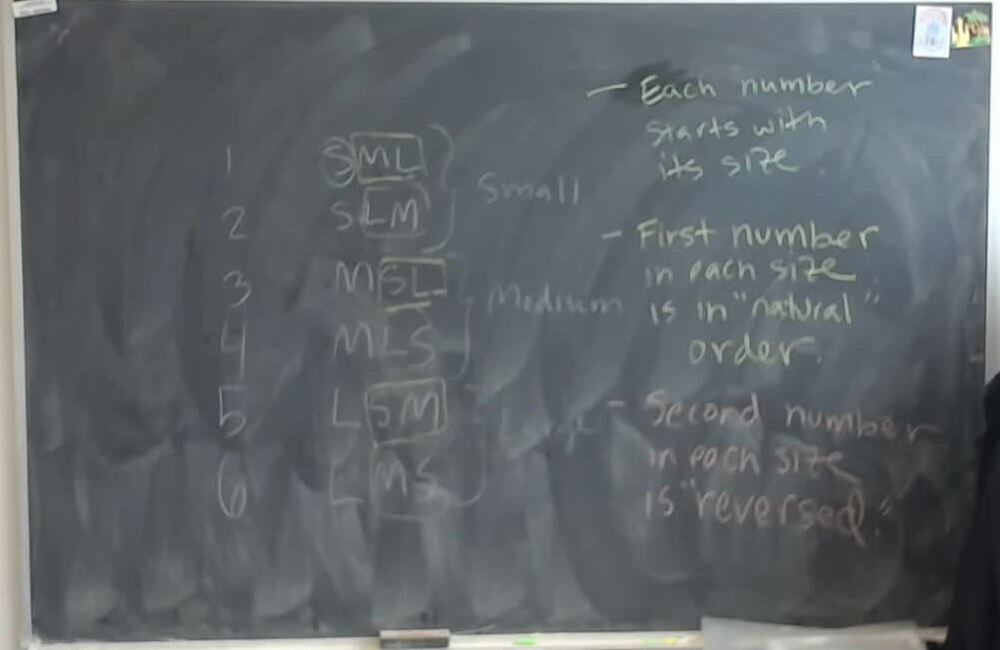 1 SML
2 SLM
Small
3 MSL
4 MLS
Medium
5 LSM
6 LMS
- Each number
starts with
its size.
- First number
in each size
is in "natural"
order.
- Second number
in each size
is "reversed."